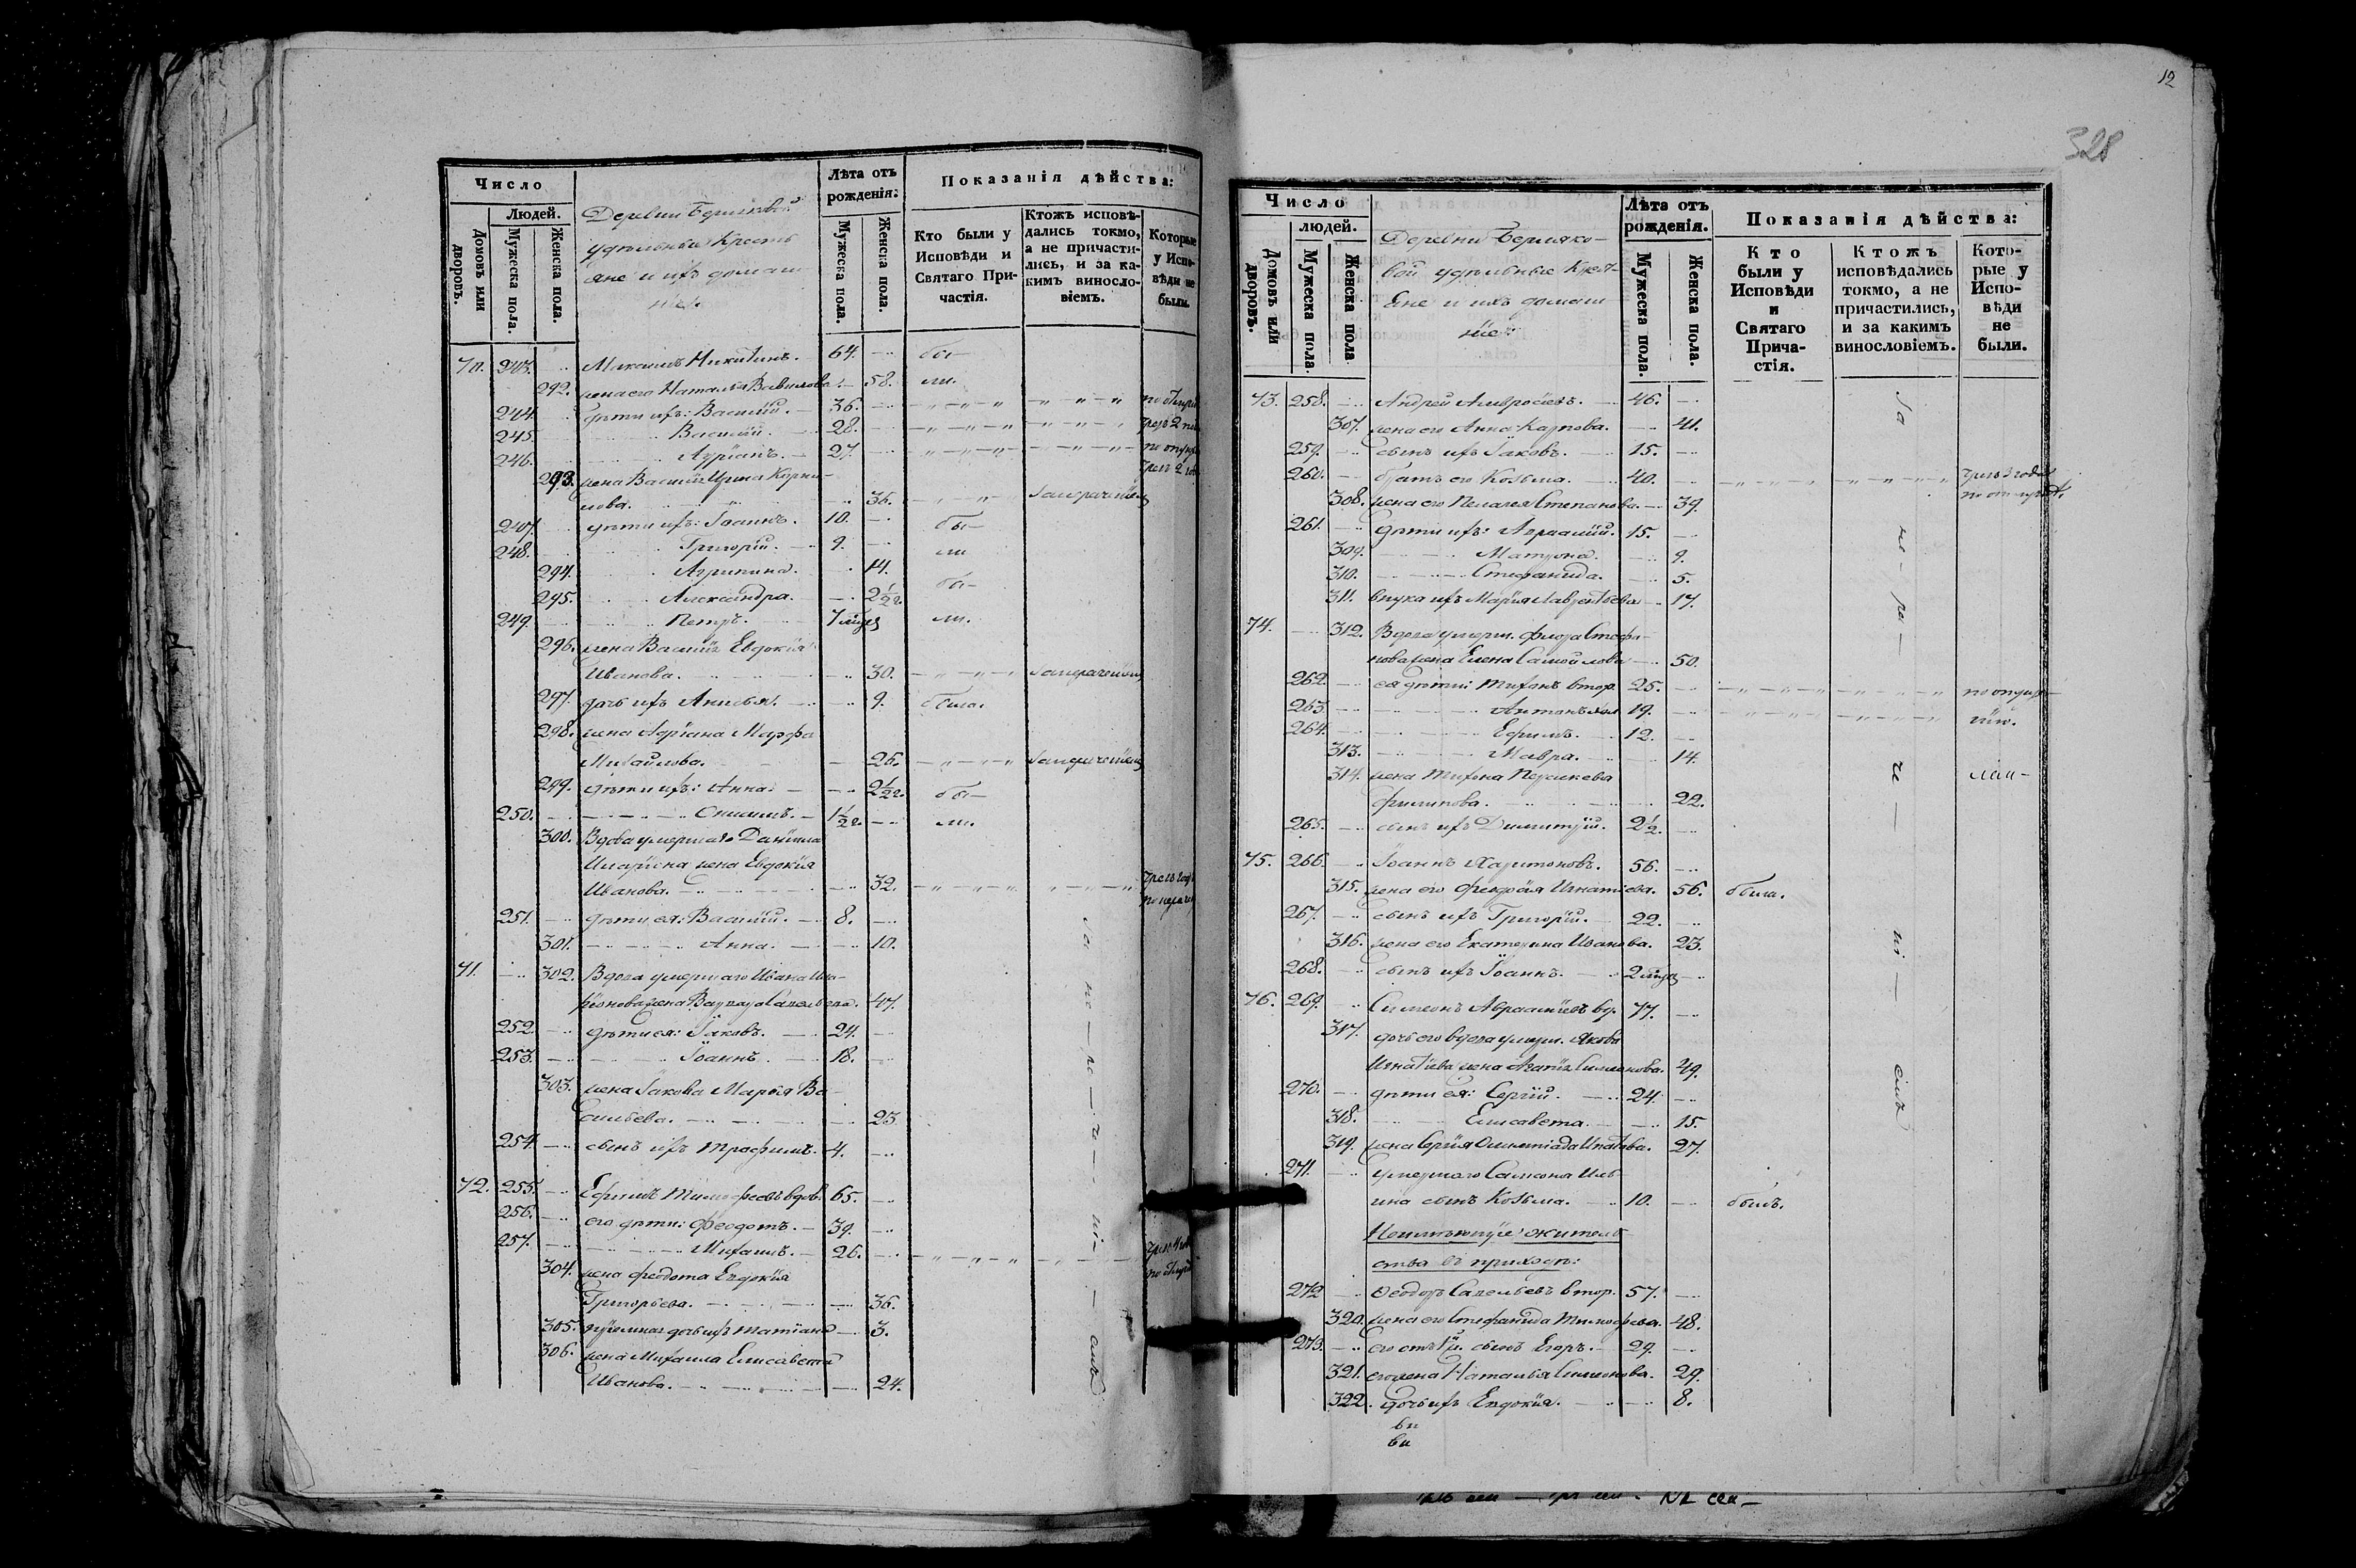 Число
Людей.
Домовъ или дворовъ.
Мужеска пола.
Женска пола.
Деревни
удѣльные кресть
яне и ихъ домаш
ніе.
Лѣта отъ рожденія:
Мужеска пола.
Женска пола.
Показанія дѣйства:
Кто были у Исповѣди и Святаго Причастія.
Ктожъ исповѣдались токмо, а не причастились, и за какимъ винословіемъ.
Которые у Исповѣди не были.
70. 243. Никитинъ. 64. бы-
292. жена его Наталья Вавилова 58. ли.
244. дѣти ихъ: Василій. 36.
245. Василій. 28.
246. Адріанъ. 27.
293. жена Василія Ирина Корни-
лова. 36.
247. дѣти ихъ: Іоаннъ. 10. бы-
248. Григорій. 9. ли
294. Агрипина. 14.
295. Александра. 2 1/2 бы-
249. Петръ. 7 ли.
296. жена Василія Евдокія
Иванова. 30.
297. дочь ихъ Анисья. 9. была.
298. жена Адріана Марфа
Михайлова. 26.
299. дѣти ихъ: Анна. 2 1/2 бы-
250. 1 1/2 ли.
300. Вдова умершаго Даніила
жена Евдокія
Иванова. 32.
251. дѣти ея: Василій. 8.
301. Анна. 10.
71. 302. Вдова умершаго Ивана Ила-
ріонова жена Варвара Савельева. 47.
252. дѣти ея: Іаковъ. 24.
253. Іоаннъ. 18.
303. жена Іакова Марья Ва-
сильева. 23
254. сынъ ихъ Трофимъ. 4.
72. 255. Ефимъ Тимофеевъ вдов. 65.
256. его дѣти: Феодотъ. 39.
257. Михаилъ. 26.
304. жена Феодота Евдокія
Григорьева. 36.
305. дочь ихъ Татіана 3.
306. жена Михаила Елисавета
Иванова. 24.
12
328
Число
людей.
Домовъ или дворовъ.
Мужеска пола.
Женска пола
Деревни Берляко-
вой удѣльные крест-
яне и ихъ домаш
ніе:
Лѣта отъ рожденія.
Мужеска пола.
Женска пола.
Показанія дѣйства:
Кто были у Исповѣди и Святаго Причастія.
Ктожъ исповѣдались токмо, а не причастились, и за какимъ винословіемъ.
Которые у Исповѣди не были.
73. 258. Андрей Амвросіевъ. 46.
307. жена его Анна Карпова. 41.
259. сынъ ихъ Іаковъ. 15.
260. братъ его Козьма. 40.
308. жена его Пелагея Степанова. 39.
261. дѣти ихъ: Авраамій. 15.
309. Матрона. 9.
310. Стефанида. 5.
311. внука ихъ Марія Лаврентьева 17.
74. 312. Вдова умерш. Флора Стефа-
нова жена Елена Самойлова 50.
262. ея дѣти: Тихонъ втор. 25.
263 Антонъ 19.
264. Ефимъ. 12.
313. Мавра. 14.
314. жена Тихона
Филипова. 22.
265. сынъ ихъ Димитрій. 2 1/2.
75. 266. Іоаннъ Харитоновъ. 56.
315. жена его Феодосія Игнатіева. 56. была.
267. сынъ ихъ Григорій. 22.
316. жена его Екатерина Иванова. 23.
268. сынъ ихъ Іоаннъ. 2
76. 269. Симеонъ Авраамьевъ вд. 77.
317. дочь его вдова умерш. Якова
Игнатіева жена Агапія Симеонова. 49.
270. дѣти ея: Сергій. 24.
318. Елисавета. 15.
319. жена Сергія Олимпіада Игнатова. 27.
271. умершаго Самсона Иль-
ина сынъ Козьма. 10. былъ.
жительства въ приходѣ:
272 Феодоръ Савельевъ втор. 57.
320. жена его Стефанида Тимофеева. 48.
273. сынъ Егоръ. 29.
321. его жена Наталья Симеонова. 29.
322. дочь ихъ Евдокія. 8.